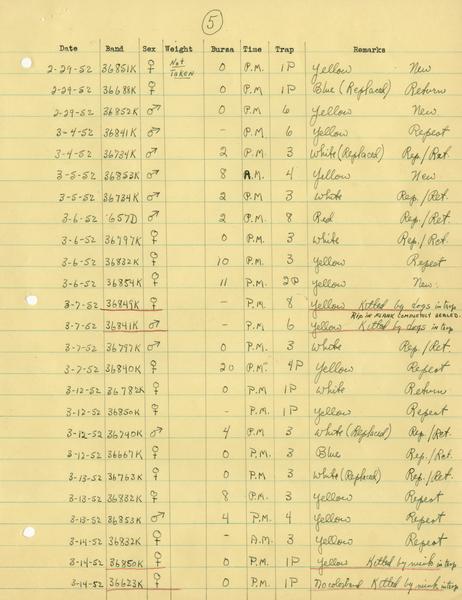 5
Date Band Sex Weight Bursa Time Trap Remarks
2-29-52 36851K ♀ Not Taken 0 P.M. 1P Yellow New
2-29-52 36688K ♀ 0 P.M. 1P Blue (Replaced) Return
2-29-52 36852K ♂ 0 P.M. 6 Yellow New
3-4-52 36841K ♂ - P.M. 6 Yellow Repeat
3-4-52 36734K ♂ 2 P.M. 3 White (Replaced) Rep./Ret.
3-5-52 36853K ♂ 8 A.M. 4 Yellow New
3-5-52 36734K ♂ 2 P.M 3 White Rep./Ret.
3-6-52 657D ♂ 2 P.M. 8 Red Rep./Ret.
3-6-52 36797K ♀ 0 P.M. 3 White Rep./Ret.
3-6-52 36832K ♀ 10 P.M. 3 Yellow Repeat
3-6-52 36854K ♀ 11 P.M. 2P Yellow New
3-7-52 36849K ♀ - P.M. 8 Yellow Killed by dogs in trap
Rip in flank completely healed.
3-7-52 36841K ♂ - P.M. 6 Yellow Killed by dogs in trap
3-7-52 36797K ♂ 0 P.M. 3 White Rep./Ret.
3-7-52 36840K ♀ 20 P.M. 4P Yellow Repeat
3-12-52 36782K ♀ 0 P.M 1P White Return
3-12-52 36850K ♀ - P.M. 1P Yellow Repeat
3-12-52 36740K ♂ 4 P.M 3 White (Replaced) Rep./Ret.
3-12-52 36667K ♀ 0 P.M. 3 Blue Rep./Ret.
3-13-52 36763K ♀ 0 P.M 3 White (Replaced) Rep./Ret.
3-13-52 36832K ♀ 8 P.M. 3 Yellow Repeat
3-13-52 36853K ♂ 4 P.M. 4 Yellow Repeat
3-14-52 36832K ♀ - A.M. 3 Yellow Repeat
3-14-52 36850K ♀ 0 P.M. 1P Yellow Killed by mink in trap
3-14-52 36623K ♀ 0 P.M. 1P No colorband Killed by mink in trap